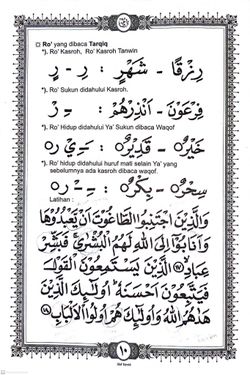 Ro' yang dibaca Tarqiq
*). Ro' Kasroh, Ro' Kasroh Tanwin
رِزْقًا - شَهْرٍ : رِ - رٍ
*). Ro' Sukun didahului Kasroh.
فِرْعَوْنَ - اَنْذِرْهُمْ : ـِ رْ
*). Ro' Hidup didahului Ya' Sukun dibaca Waqof
خَيْرٌ ۝ - قَدِيْرٌ ۝ :
*). Ro' hidup didahului huruf mati selain Ya' yang
sebelumnya ada kasroh dibaca waqof.
سِحْرٌ ۝ - بِكْرٌ ۝ :
Latihan :
وَالَّذِيْنَ اجْتَنَبُوا الطَّاغُوْتَ اَنْ يَّعْبُدُوْهَا
وَاَنَابُوْٓا اِلَى اللّٰهِ لَهُمُ الْبُشْرٰىۚ فَبَشِّرْ
عِبَادِۙ ۝١٧ الَّذِيْنَ يَسْتَمِعُوْنَ الْقَوْلَ
فَيَتَّبِعُوْنَ اَحْسَنَهٗۗ اُولٰۤىِٕكَ الَّذِيْنَ
هَدٰىهُمُ اللّٰهُ وَاُولٰۤىِٕكَ هُمْ اُولُوا الْاَلْبَابِ ۝١٨
١٠